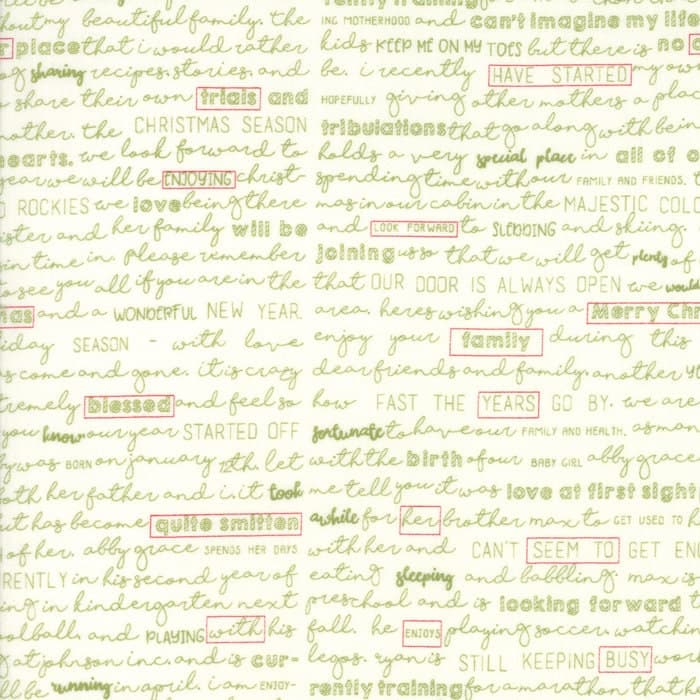 beautiful family. the ING MOTHERHOOD and can't imagine my life
place that i would rather kids KEEP ME ON MY TOES but there is no
sharing recipes, stories, and be. i recently HAVE STARTED my own
share their own trials and HOPEFULLY giving other mothers a place
the CHRISTMAS SEASON tribulations that go along with being
hearts. we look forward to holds a very special place in all of
year we will be ENJOYING christ- spending time with our FAMILY AND FRIENDS.
ROCKIES we love being there mas in our cabin in the MAJESTIC COLO
sister and her family will be and LOOK FORWARD to SLEDDING and skiing.
in time in. please remember joining us so that we will get plenty of
see you all if you are in the that OUR DOOR IS ALWAYS OPEN we would
mas and a WONDERFUL NEW YEAR. area. heres wishing you a Merry Chr
SEASON - with love enjoy your family during this
come and gone. it is crazy dear friends and family. another
tremely blessed and feel so how FAST THE YEARS GO BY. we are
you know our year STARTED OFF fortunate to have our FAMILY AND HEALTH. as man
was BORN on january 12th. let with the birth of our BABY GIRL abby grace
her father and i. it took me tell you it was love at first sight
ut has become quite smitten awhile for her brother max to GET USED TO
of her. abby grace SPENDS HER DAYS with her and CAN'T SEEM TO GET EN
RENTLY in his second year of eating sleeping and babbling. max is
in kindergarten next preschool and is looking forward
oolball. and PLAYING with his fall. he ENJOYS playing soccer. watching
at johnson inc. and is cur- legos. ryan is STILL KEEPING BUSY
be running in april. i am ENJOY- rently training for a marathon that